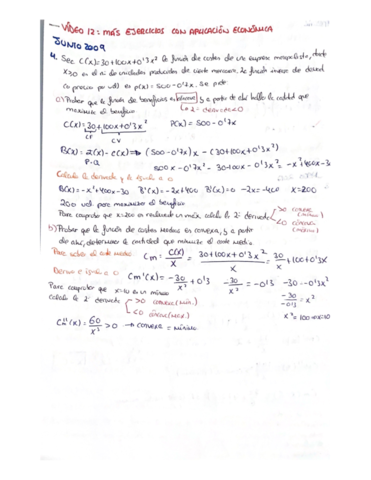 VÍDEO 12: MÁS EJERCICIOS CON APLICACIÓN ECONÓMICA
JUNIO 2009
4. Sea C(x)=30+100x+0'3x² la función de costes de una empresa monopolista, donde
x≥0 es el nº de unidades producidas de cierta mercancía. La función inversa de demanda
(o precio por ud) es p(x)=500-0'7x. Se pide:
a) Probar que la función de beneficios es cóncava y a partir de ahí hallar la cantidad que
maximiza el beneficio
C(x)=30+100x+0'3x² P(x)=500-0'7x
CF CV
B(x)= I(x)-C(x)= (500-0'7x)x - (30+100x+0'3x²)
P·Q 500x-0'7x²-30-100x-0'3x² -x²+400x-30
Calculo la derivada y la igualo a 0
B(x)=-x²+400x-30 B'(x)=-2x+400 B'(x)=0 -2x=-400 x=200
200 uds. para maximizar el beneficio
Para comprobar que x=200 es realmente un máx. calculo la 2ª derivada >0 convexa (mínimo)
<0 cóncava (máximo)
b) Probar que la función de costes medios es convexa, y a partir
de ahí, determinar la cantidad que minimiza el coste medio
Para saber el coste medio: Cm= C(x)/x = 30+100x+0'3x²/x = 30/x+100+0'3x
Derivo e igualo a 0 Cm'(x)= -30/x²+0'3 -30/x²=-0'3 -30=-0'3x²
Para comprobar que x=10 es un mínimo
-30/-0'3=x²
Calculo la 2ª derivada >0 convexa (mín.)
<0 cóncava (máx)
x²=100→x=10
Cm''(x)= 60/x³ >0 → convexa = mínimo